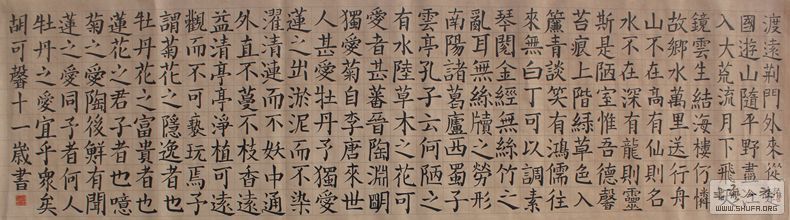 渡遠荆門外來從楚
國遊山隨平野盡江
入大荒流月下飛
鏡雲生結海樓仍憐
故鄉水萬里送行舟
山不在高有仙則名
水不在深有龍則靈
斯是陋室惟吾德馨
苔痕上階綠草色入
簾青談笑有鴻儒往
來無白丁可以調素
琴閱金經無絲竹之
亂耳無絲牘之勞形
南陽諸葛廬西蜀子
雲亭孔子云何陋之
有水陸草木之花可
愛者甚蕃晉陶淵明
獨愛菊自李唐來世
人甚愛牡丹予獨愛
蓮之出淤泥而不染
濯清漣而不妖中通
外直不蔓不枝香遠
益清亭亭淨植可遠
觀而不可褻玩焉予
謂菊花之隱逸者也
牡丹花之富貴者也
蓮花之君子者也噫
菊之愛陶後鮮有聞
蓮之愛同予者何人
牡丹之愛宜乎眾矣
胡可馨十一歲書
WWW.SHUFA.ORG